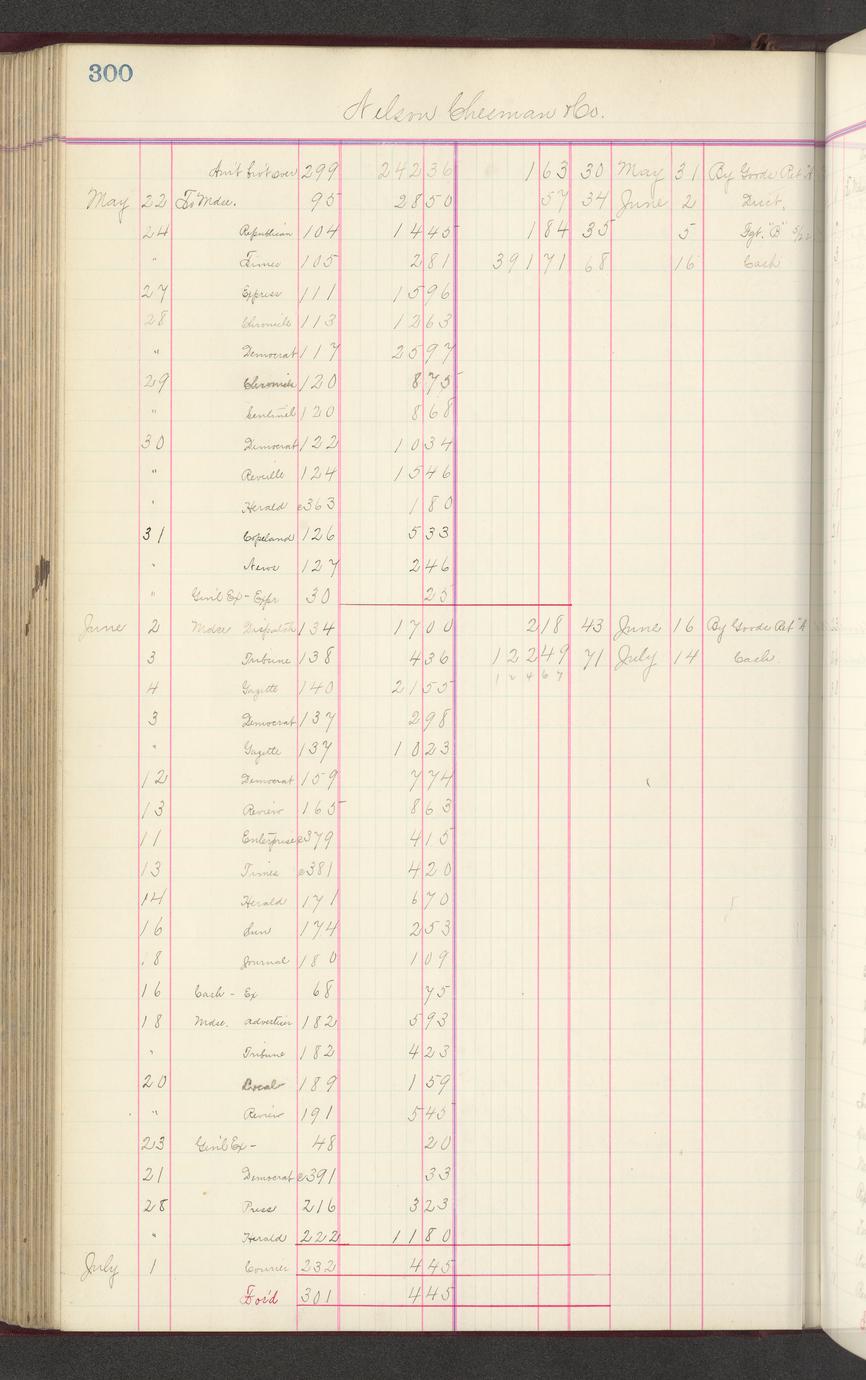 300
Nelson Chesman & Co.
Am't bro't over 299 242 36 1 63 30 May 31 By Goods Ret "A"
May 22 To Mdse. 95 28 50 57 34 June 2 Duct.
24 Republican 104 14 45 1 84 35 5 Fgt. "B" 5/22
" Times 105 2 81 391 71 68 16 Cash
27 Express 111 15 96
28 Chronicle 113 12 63
" Democrat 117 25 97
29 Chronicle 120 8 75
" Sentinel 120 8 68
30 Democrat 122 10 34
" Reveille 124 15 46
" Herald c363 1 80
31 Copeland 126 5 33
" News 127 2 46
" Gen'l Ex - Expr 30 25
June 2 Mdse Dispatch 134 17 00 2 18 43 June 16 By Goods Ret "A"
3 Tribune 138 4 36 122 49 71 July 14 Cash.
124 67
4 Gazette 140 21 55
3 Democrat 137 2 98
" Gazette 137 10 23
12 Democrat 159 7 74
13 Review 165 8 63
11 Enterprise c379 4 15
13 Times c381 4 20
14 Herald 171 6 70
16 Sun 174 2 53
18 Journal 180 1 09
16 Cash - Ex 68 75
18 Mdse. Advertiser 182 5 93
" Tribune 182 4 23
20 Local 189 1 59
" Review 191 5 45
23 Gen'l Ex - 48 20
21 Democrat c391 33
28 Press 216 3 23
" Herald 222 11 80
July 1 Courier 232 4 45
For'd 301 4 45